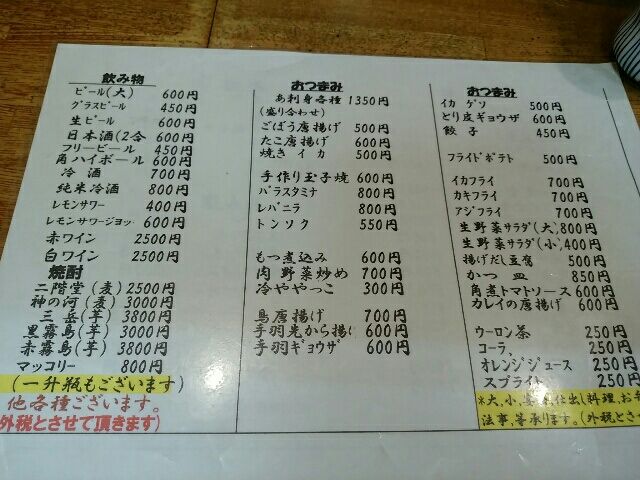 飲み物
ビール(大) 600円
グラスビール 450円
生ビール 600円
日本酒(2合 600円
フリービール 450円
角ハイボール 600円
冷酒 700円
純米冷酒 800円
レモンサワー 400円
レモンサワージョッ 600円
赤ワイン 2500円
白ワイン 2500円
焼酎
二階堂(麦) 2500円
神の河(麦) 3000円
三岳(芋) 3800円
黒霧島(芋) 3000円
赤霧島(芋) 3800円
マッコリー 800円
(一升瓶もございます)
他各種ございます。
外税とさせて頂きます)
おつまみ
お刺身各種 1350円
(盛り合わせ)
ごぼう唐揚げ 500円
たこ唐揚げ 600円
焼きイカ 500円
手作り玉子焼 600円
バラスタミナ 800円
レバニラ 800円
トンソク 550円
もつ煮込み 600円
肉野菜炒め 700円
冷ややっこ 300円
鳥唐揚げ 700円
手羽先から揚げ 600円
手羽ギョウザ 600円
おつまみ
イカゲソ 500円
とり皮ギョウザ 600円
餃子 450円
フライドポテト 500円
イカフライ 700円
カキフライ 700円
アジフライ 700円
生野菜サラダ(大) 800円
生野菜サラダ(小) 400円
揚げだし豆腐 500円
かつ皿 850円
角煮トマトソース 600円
カレイの唐揚げ 600円
ウーロン茶 250円
コーラ、 250円
オレンジジュース 250円
スプライト 250円
*大、小、仕出し料理、お弁
法事、等承ります。(外税とさ